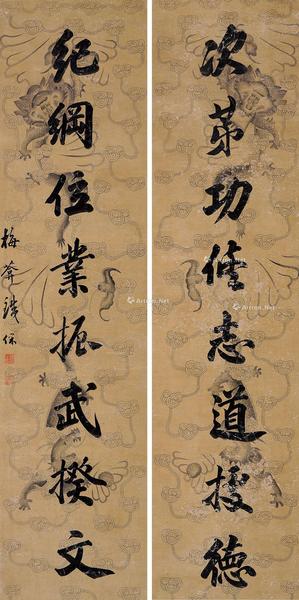 次苐功修志道據德
紀綱位業振武揆文
梅菴鐵保
Artron.Net
Artron.Net